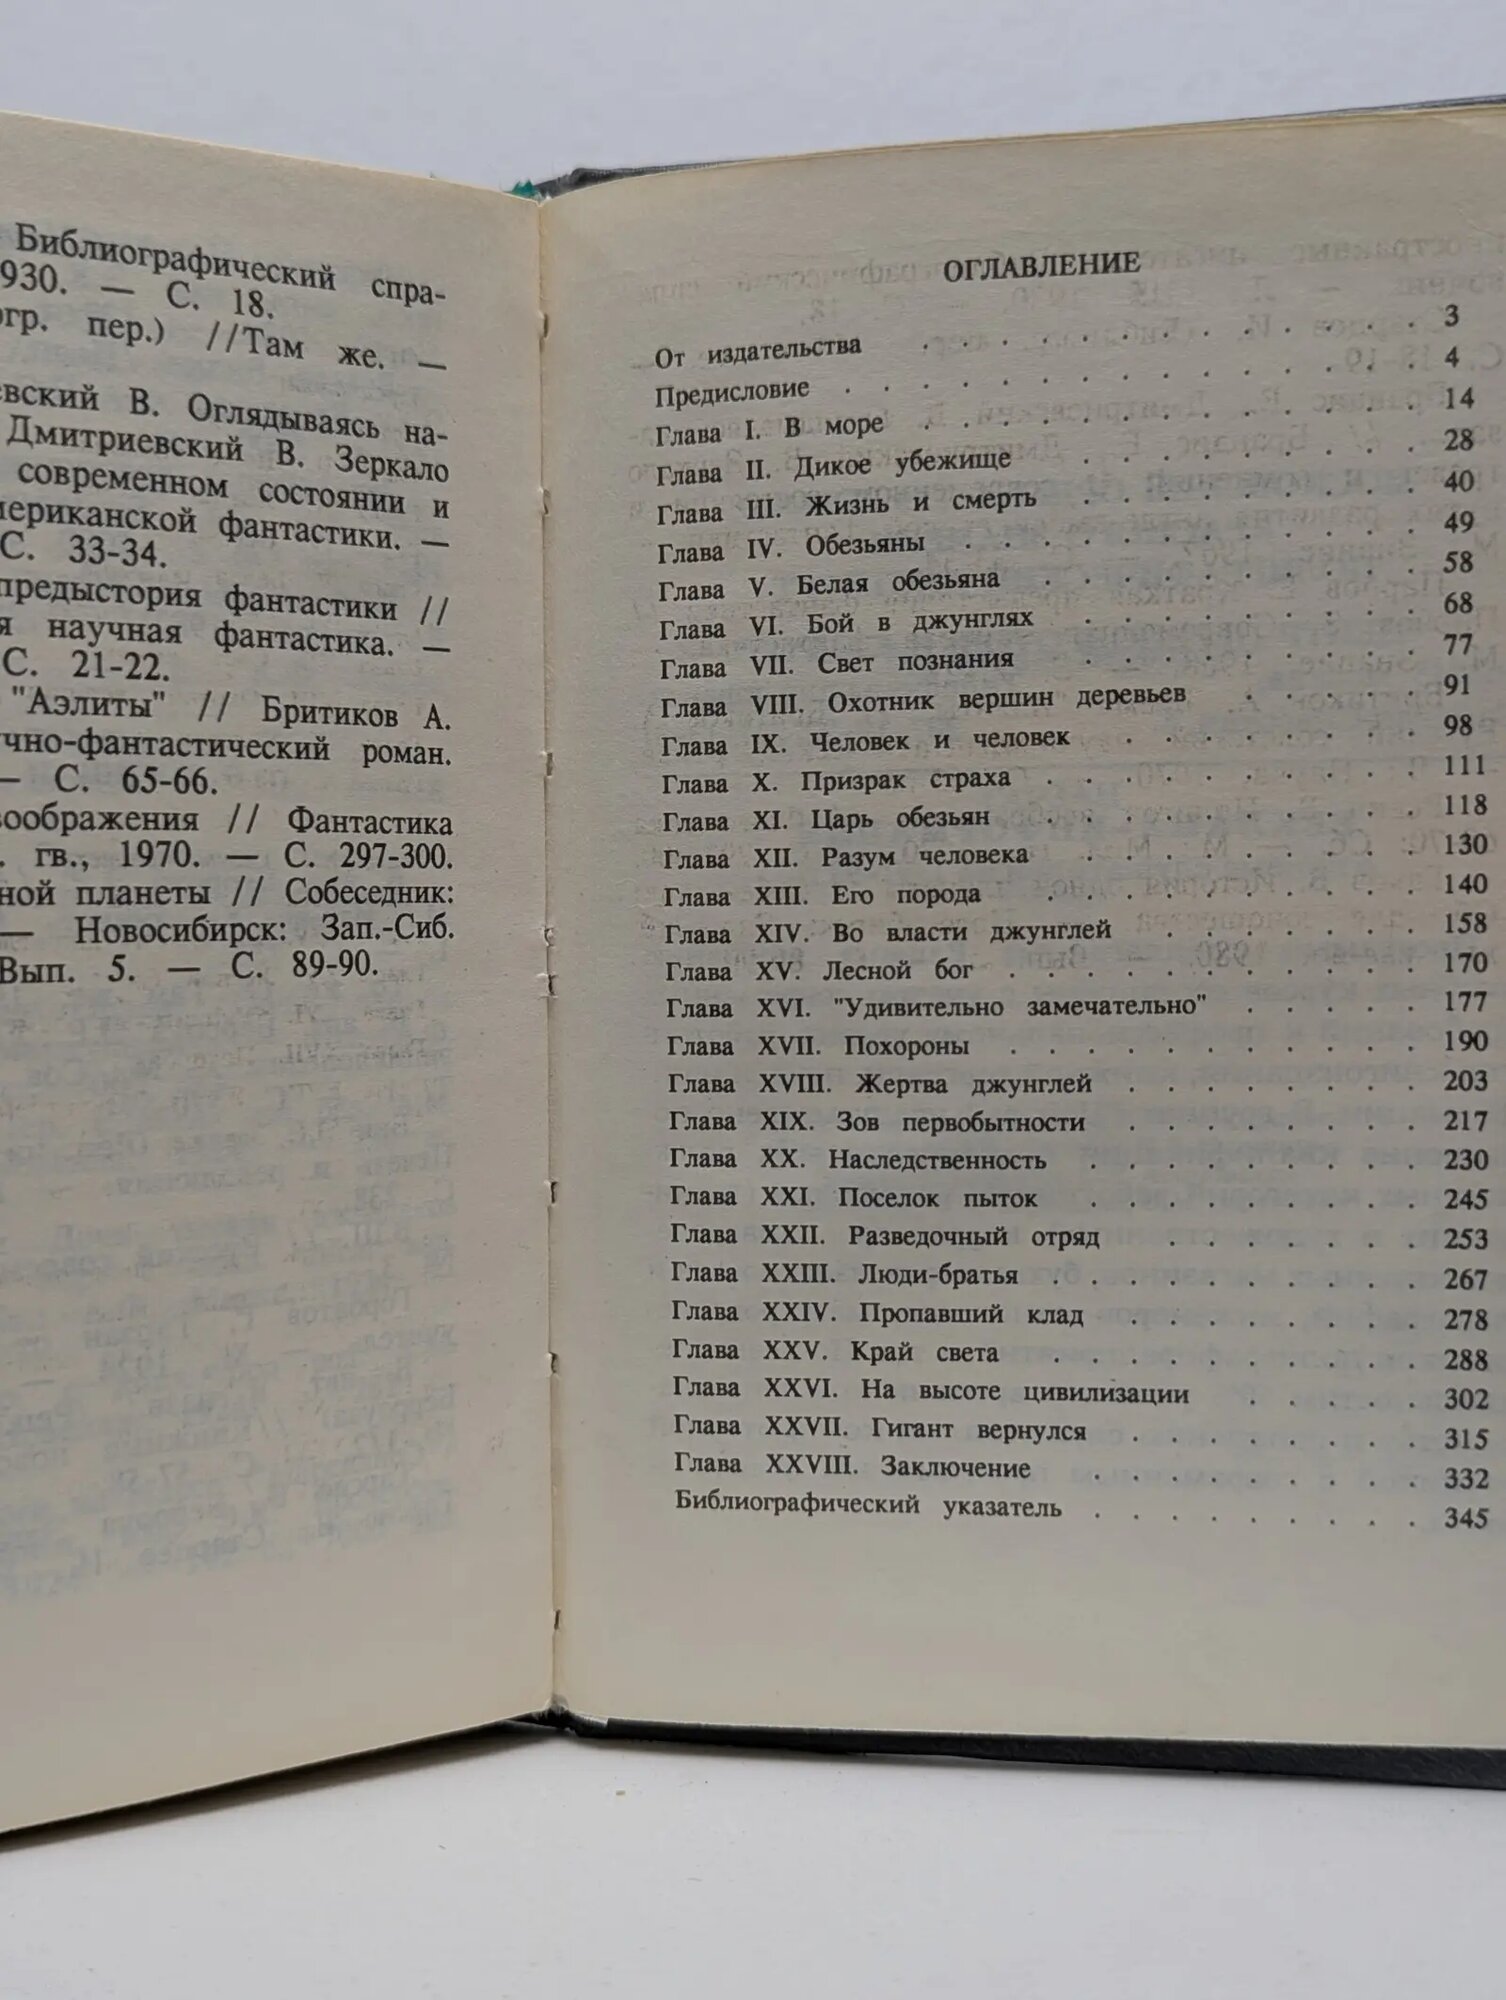 Библиографический спра-
930. — С. 18.
огр. пер.) //Там же. —
евский В. Оглядываясь на-
Дмитриевский В. Зеркало
современном состоянии и
мериканской фантастики. —
С. 33-34.
предыстория фантастики //
я научная фантастика. —
С. 21-22.
"Аэлиты" // Бритиков А.
учно-фантастический роман.
— С. 65-66.
воображения // Фантастика
. гв., 1970. — С. 297-300.
ной планеты // Собеседник:
— Новосибирск: Зап.-Сиб.
Вып. 5. — С. 89-90.
ОГЛАВЛЕНИЕ
От издательства . . . . . . . . . . . . 3
Предисловие . . . . . . . . . . . . . . 4
Глава I. В море . . . . . . . . . . . . 14
Глава II. Дикое убежище . . . . . . . . 28
Глава III. Жизнь и смерть . . . . . . . . 40
Глава IV. Обезьяны . . . . . . . . . . . 49
Глава V. Белая обезьяна . . . . . . . . . 58
Глава VI. Бой в джунглях . . . . . . . . 68
Глава VII. Свет познания . . . . . . . . 77
Глава VIII. Охотник вершин деревьев . . . . . 91
Глава IX. Человек и человек . . . . . . . 98
Глава X. Призрак страха . . . . . . . . . 111
Глава XI. Царь обезьян . . . . . . . . . 118
Глава XII. Разум человека . . . . . . . . 130
Глава XIII. Его порода . . . . . . . . . 140
Глава XIV. Во власти джунглей . . . . . . 158
Глава XV. Лесной бог . . . . . . . . . . 170
Глава XVI. "Удивительно замечательно" . . . . . 177
Глава XVII. Похороны . . . . . . . . . . 190
Глава XVIII. Жертва джунглей . . . . . . . 203
Глава XIX. Зов первобытности . . . . . . . 217
Глава XX. Наследственность . . . . . . . . 230
Глава XXI. Поселок пыток . . . . . . . . 245
Глава XXII. Разведочный отряд . . . . . . 253
Глава XXIII. Люди-братья . . . . . . . . . 267
Глава XXIV. Пропавший клад . . . . . . . 278
Глава XXV. Край света . . . . . . . . . 288
Глава XXVI. На высоте цивилизации . . . . . 302
Глава XXVII. Гигант вернулся . . . . . . . 315
Глава XXVIII. Заключение . . . . . . . . 332
Библиографический указатель . . . . . . . . 345